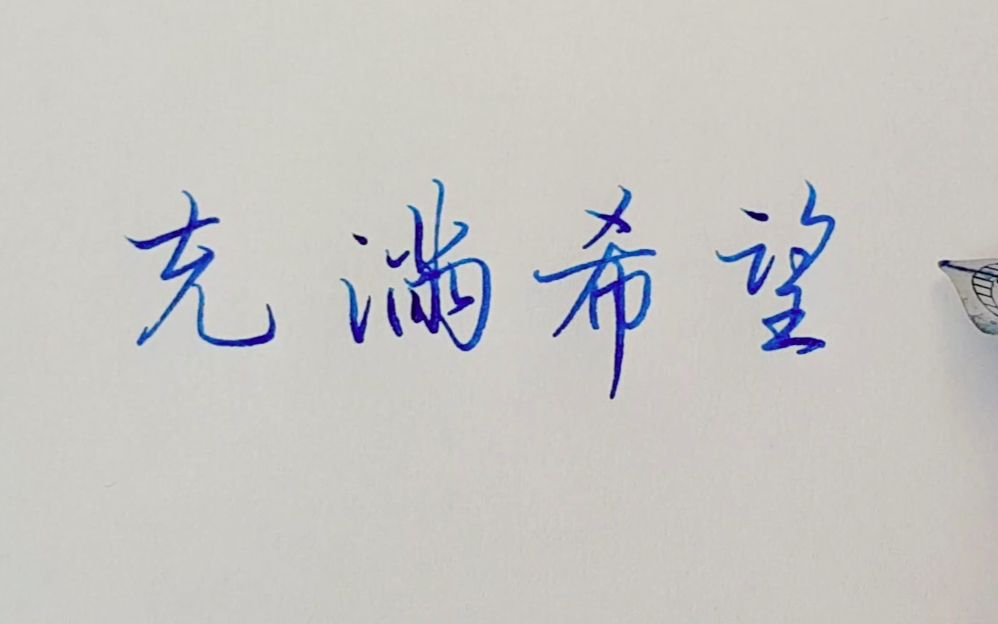 充满希望